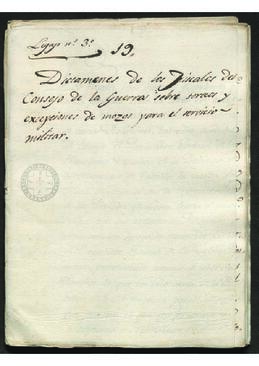 Legajo nº 3º
19.
Dictamenes de los Fiscales del
Consejo de la Guerra sobre sorteos y
exepciones de mozos para el servicio
militar.